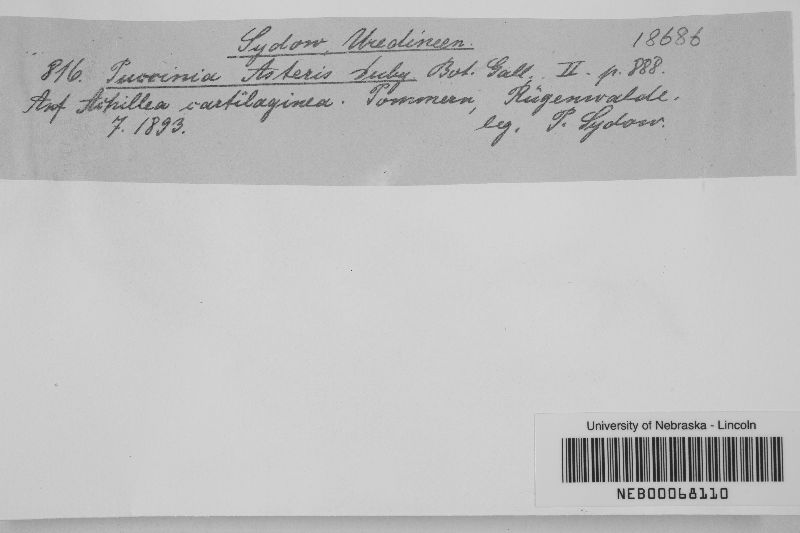 Sydow, Uredineen.
18686
816. Puccinia Asteris Duby Bot. Gall. II. p. 888.
Auf Achillea cartilaginea. Pommern, Rügenwalde.
7. 1893.
leg. P. Sydow.
University of Nebraska - Lincoln
NEB00068110